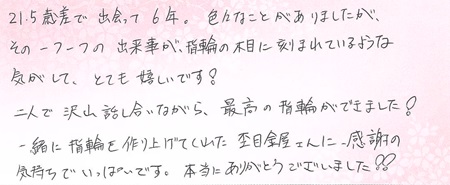 21.5歳差で出会って6年。色々なことがありましたが、
その一つ一つの出来事が、指輪の木目に刻まれているような
気がして、とても嬉しいです！
二人で沢山話し合いながら、最高の指輪ができました！
一緒に指輪を作り上げてくれた杢目金屋さんに感謝の
気持ちでいっぱいです。本当にありがとうございました!!